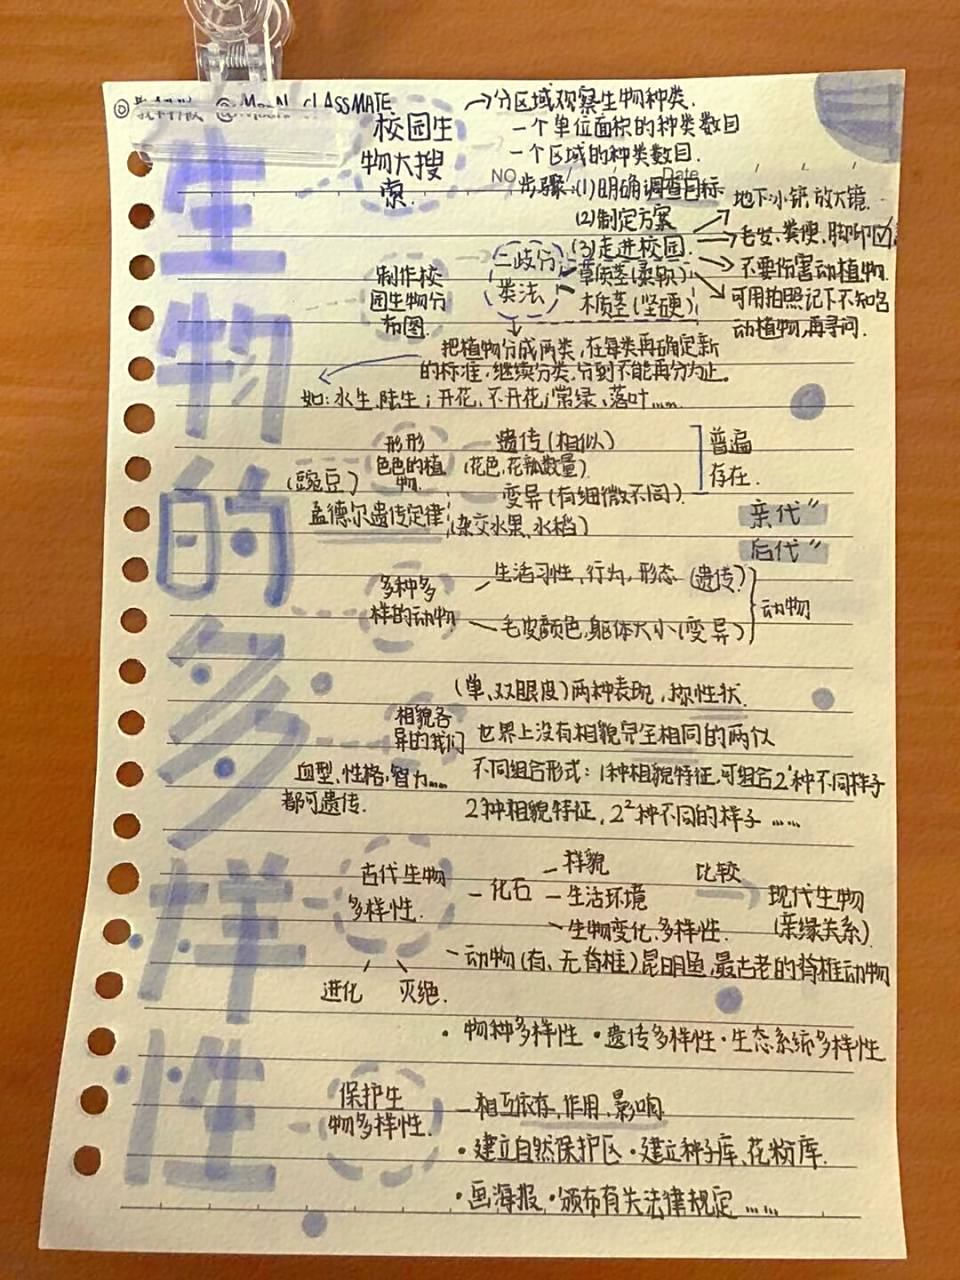 ◎教科版 @MooN cLAssMATE
生物的多样性
NO.
Date
校园生
物大搜
索.
→分区域观察生物种类.
一个单位面积的种类数目
一个区域的种类数目.
步骤:(1)明确调查目标
(2)制定方案
(3)走进校园.
地下:小铲.放大镜.
毛发、粪便、脚印
不要伤害动植物.
可用拍照记下不知名
动植物,再寻问.
制作校
园生物分
布图.
二歧分
类法
草质茎(柔软)
木质茎(坚硬)
把植物分成两类,在每类再确定新
的标准,继续分类,分到不能再分为止。
如:水生、陆生;开花、不开花;常绿、落叶……
形形
色色的植
物.
遗传(相似)
(花色,花瓣数量).
变异(有细微不同).
(杂交水果、水稻)
普遍
存在.
(豌豆)
孟德尔遗传定律
亲代“
后代“
多种多
样的动物
生活习性,行为,形态(遗传)
毛皮颜色,躯体大小(变异)
动物
相貌各
异的我们
(单、双眼皮)两种表现,称性状.
世界上没有相貌完全相同的两位
血型、性格,智力……
都可遗传.
不同组合形式:1种相貌特征,可组合2¹种不同样子
2种相貌特征,2²种不同的样子……
古代生物
多样性.
进化 灭绝.
化石
样貌
生活环境
生物变化、多样性.
比较
现代生物
(亲缘关系)
动物(有、无脊椎)昆明鱼,最古老的脊椎动物
·物种多样性·遗传多样性·生态系统多样性
保护生
物多样性.
相互依存,作用,影响
·建立自然保护区·建立种子库、花粉库.
·画海报·颁布有关法律规定……